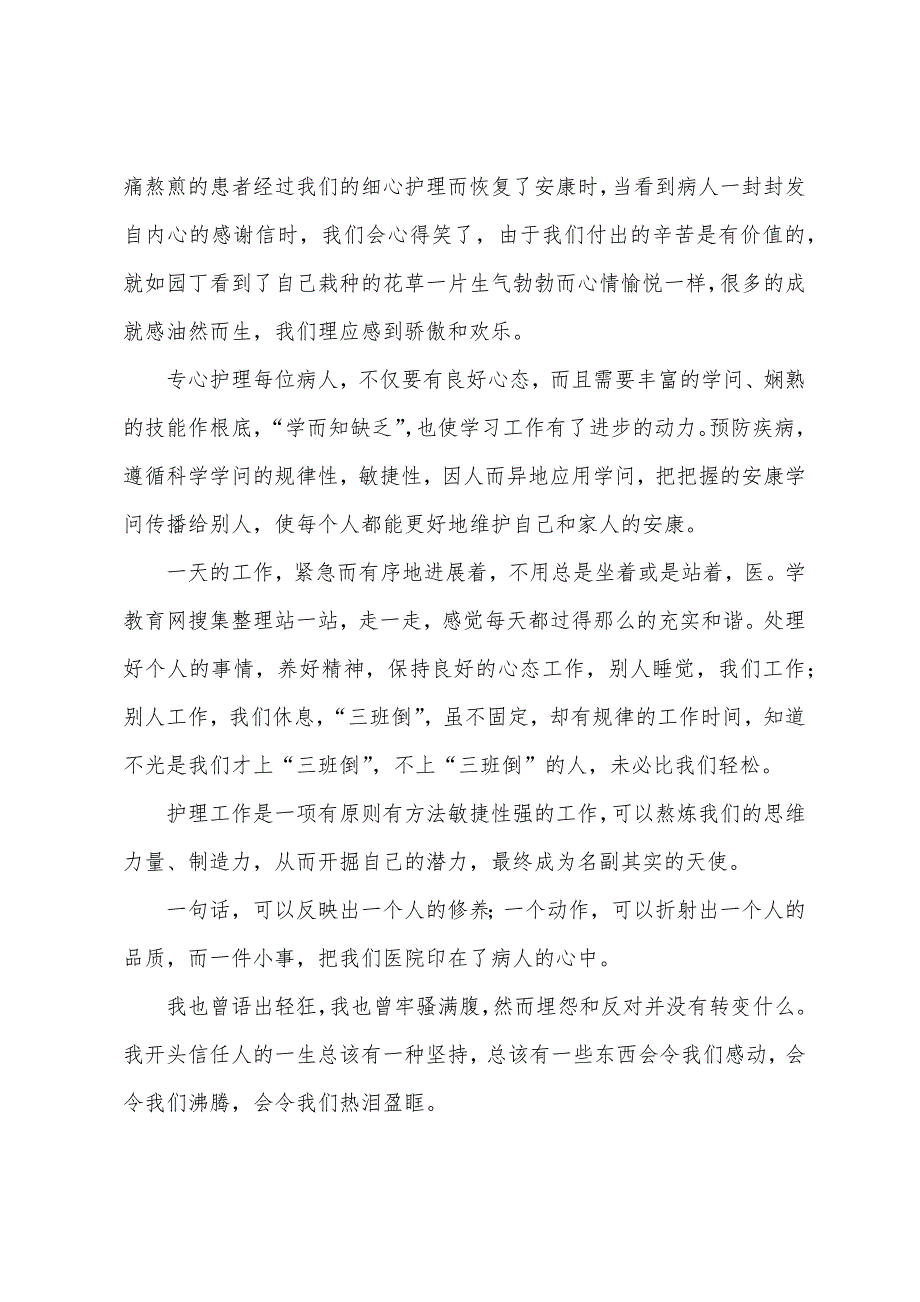 痛熬煎的患者经过我们的细心护理而恢复了安康时，当看到病人一封封发
自内心的感谢信时，我们会心得笑了，由于我们付出的辛苦是有价值的，
就如园丁看到了自己栽种的花草一片生气勃勃而心情愉悦一样，很多的成
就感油然而生，我们理应感到骄傲和欢乐。
专心护理每位病人，不仅要有良好心态，而且需要丰富的学问、娴熟
的技能作根底，“学而知缺乏”，也使学习工作有了进步的动力。预防疾病，
遵循科学学问的规律性，敏捷性，因人而异地应用学问，把把握的安康学
问传播给别人，使每个人都能更好地维护自己和家人的安康。
一天的工作，紧急而有序地进展着，不用总是坐着或是站着，医。学
教育网搜集整理站一站，走一走，感觉每天都过得那么的充实和谐。处理
好个人的事情，养好精神，保持良好的心态工作，别人睡觉，我们工作；
别人工作，我们休息，“三班倒”，虽不固定，却有规律的工作时间，知道
不光是我们才上“三班倒”，不上“三班倒”的人，未必比我们轻松。
护理工作是一项有原则有方法敏捷性强的工作，可以熬炼我们的思维
力量、制造力，从而开掘自己的潜力，最终成为名副其实的天使。
一句话，可以反映出一个人的修养；一个动作，可以折射出一个人的
品质，而一件小事，把我们医院印在了病人的心中。
我也曾语出轻狂，我也曾牢骚满腹，然而埋怨和反对并没有转变什么。
我开头信任人的一生总该有一种坚持，总该有一些东西会令我们感动，会
令我们沸腾，会令我们热泪盈眶。